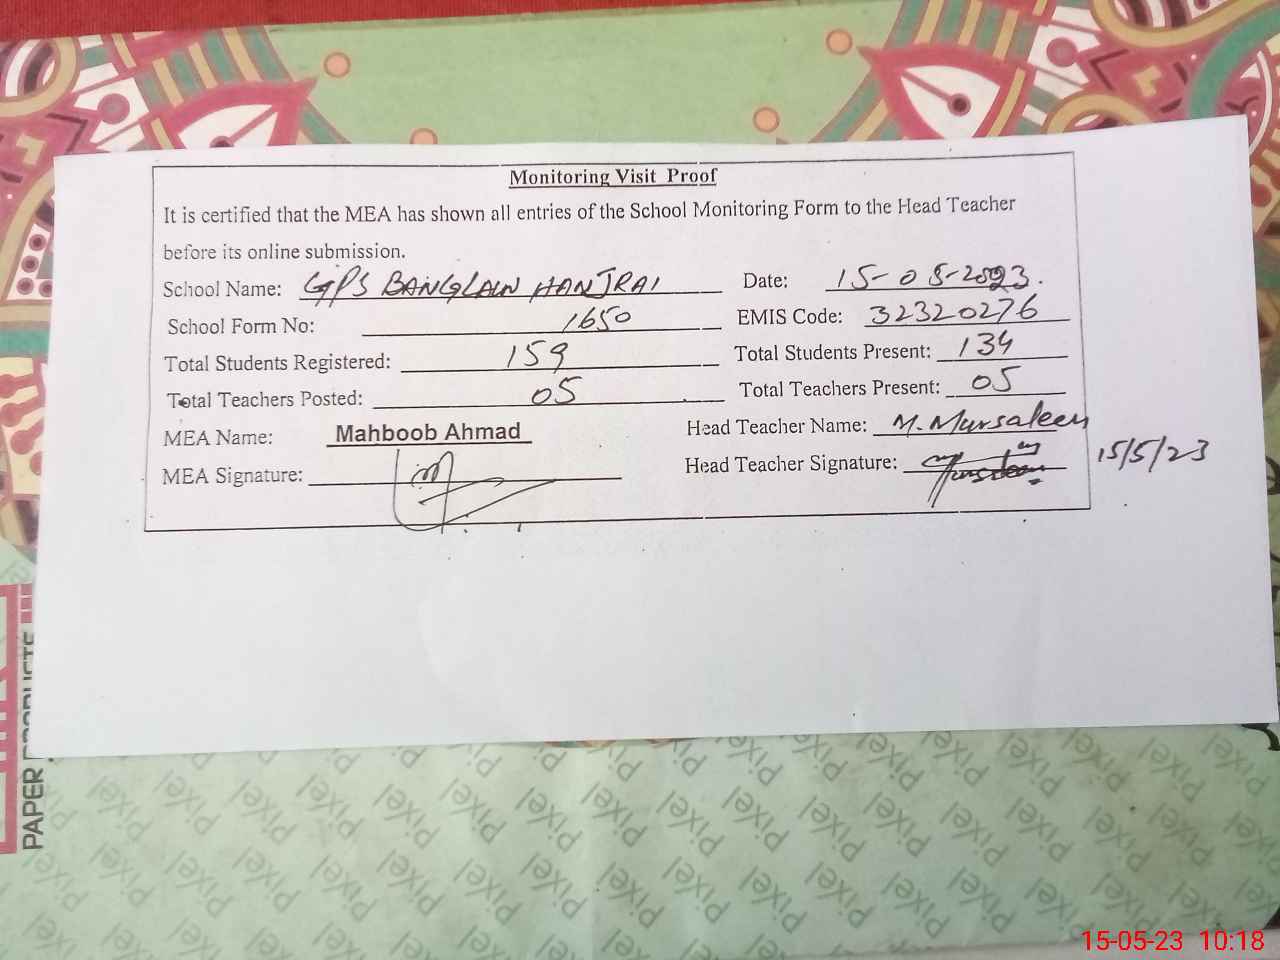 Monitoring Visit Proof
It is certified that the MEA has shown all entries of the School Monitoring Form to the Head Teacher
before its online submission.
School Name: GPS BANGLAW HANJRAI Date: 15-05-2023.
School Form No: 1650 EMIS Code: 32320276
Total Students Registered: 159 Total Students Present: 134
Total Teachers Posted: 05 Total Teachers Present: 05
MEA Name: Mahboob Ahmad Head Teacher Name: M. Mursaleen
MEA Signature: Head Teacher Signature: 15/5/23
PAPER PRODUCTS
Pixel
15-05-23 10:18